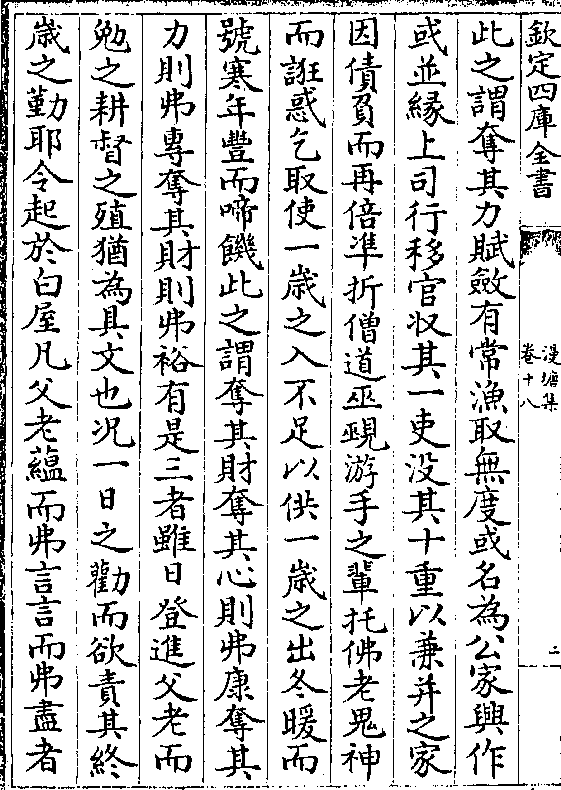 欽定四庫全書
漫塘集
卷十八
二
此之謂奪其力賦斂有常漁取無度或名為公家興作
或並緣上司行移官收其一吏没其十重以兼并之家
因債負而再倍準折僧道巫覡游手之輩托佛老鬼神
而誑惑乞取使一歲之入不足以供一歲之出冬暖而
號寒年豐而啼饑此之謂奪其財奪其心則弗康奪其
力則弗專奪其財則弗裕有是三者雖日登進父老而
勉之耕督之殖猶為具文也况一日之勸而欲責其終
歲之勤耶令起於白屋凡父老蘊而弗言言而弗盡者